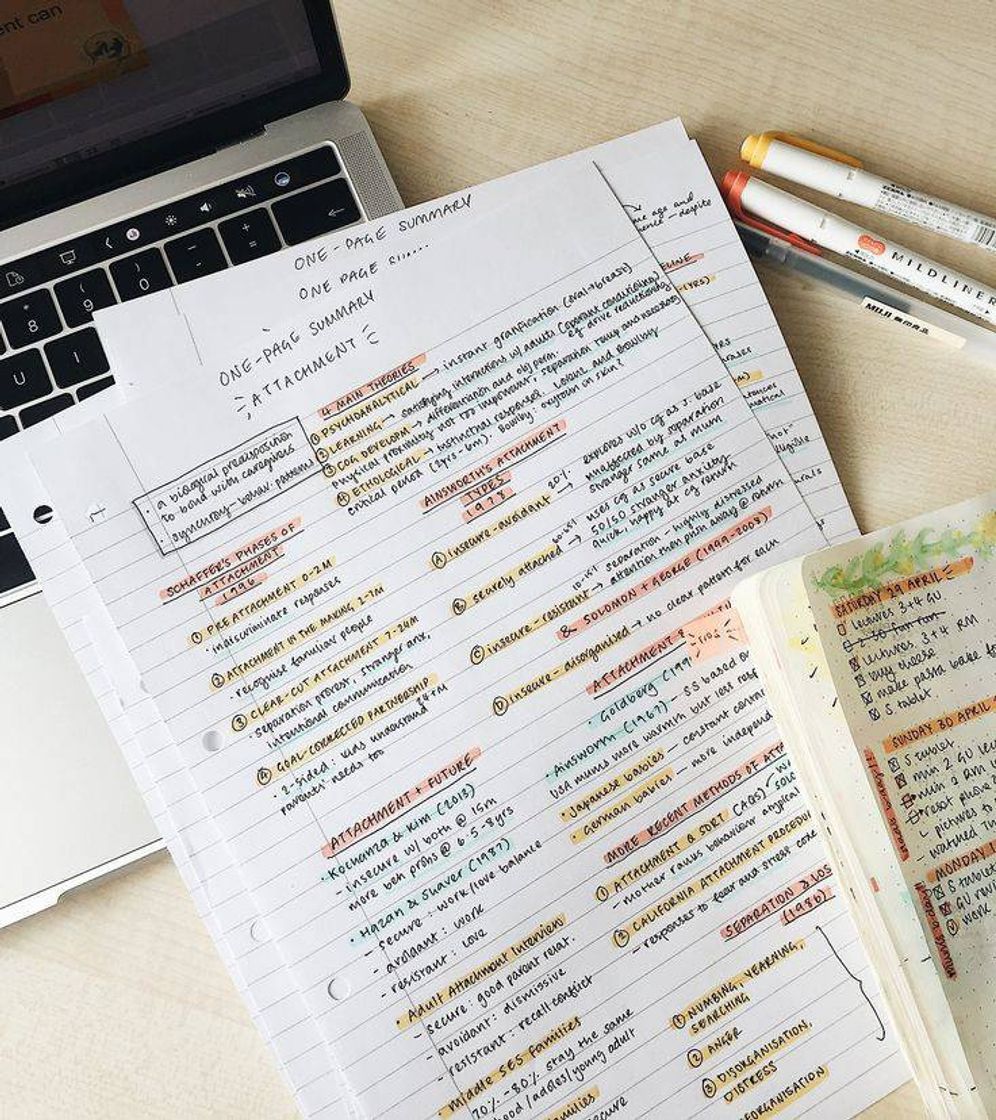 ent can
8
9
0
-
+
=
U
I
ONE-PAGE SUMMARY
ONE PAGE
ONE-PAGE SUMMARY
ATTACHMENT
· a biological predisposition
to bond with caregivers
· synchrony-behav. patterns
4 MAIN THEORIES
① PSYCHOANALYTICAL → instant gratification (oral→breast)
② LEARNING → satisfying interactions w/ adult (operant conditioning)
③ COG DEVELOPM → differentiation and obj perm. eg drive reduction
physical proximity not too important, separation temp and
④ ETHOLOGICAL → instinctual responses. Lorenz and Bowlby
critical period (3yrs-6m). Bowlby: oxytocin in skin?
SCHAFFER'S PHASES OF
ATTACHMENT
1996
① PRE ATTACHMENT 0-2M
· indiscriminate responses
② ATTACHMENT IN THE MAKING 2-7M
· recognise familiar people
③ CLEAR-CUT ATTACHMENT 7-24M
· separation protest, stranger anx,
intentional communication
④ GOAL-CORRECTED PARTNERSHIP
24+M
· 2-sided: kids understand
parents' needs too
AINSWORTH'S ATTACHMENT
TYPES
1978
Ⓐ insecure-avoidant 20% → explores w/o cg as s. base
unaffected by separation
stranger same as mum
Ⓑ securely attached → uses cg as secure base
50/50 stranger anxiety
quick, happy at cg return
Ⓒ insecure-resistant → separation - highly distressed
attention then push away @ return
& SOLOMON + GEORGE (1999-2008)
Ⓓ insecure-disorganised → no clear pattern for each
ATTACHMENT &
· Goldberg (199
· Ainsworth (1967) - SS based on
USA mums more warmth but less resp
· Japanese babies - constant contact
· German babies - more independ
ATTACHMENT + FUTURE
· Kochanza & Kim (2013)
- insecure w/ both @ 15m
more beh probs @ 6.5-8yrs
· Hazan & Shaver (1987)
- secure: work/love balance
- avoidant: work
- resistant: love
· Adult Attachment Interview
- secure: good parent relat.
- avoidant: dismissive
- resistant: recall conflict
· middle SES families
70%-80% stay the same
MORE RECENT METHODS OF ATTA
① ATTACHMENT Q SORT (AQS)
- mother rates behaviour atypical
② CALIFORNIA ATTACHMENT PROCEDU
- responses to fear and stress cope
SEPARATION & LOS
(1986)
① NUMBING, YEARNING,
SEARCHING
② ANGER
③ DISORGANISATION,
DISTRESS
ORGANISATION
age and
despite
MILDLINER
MUJI 無印良品
SATURDAY 29 APRIL
lectures 3+4 GU
2.30 fun run
lectures 3+4 RM
buy cheese
make pasta bake
S. tablet
SUNDAY 30 APRIL
S tablet
min 2 GU
min 2 am
reset phone
pictures
- watched
MONDAY 1
S tablet
GU
work